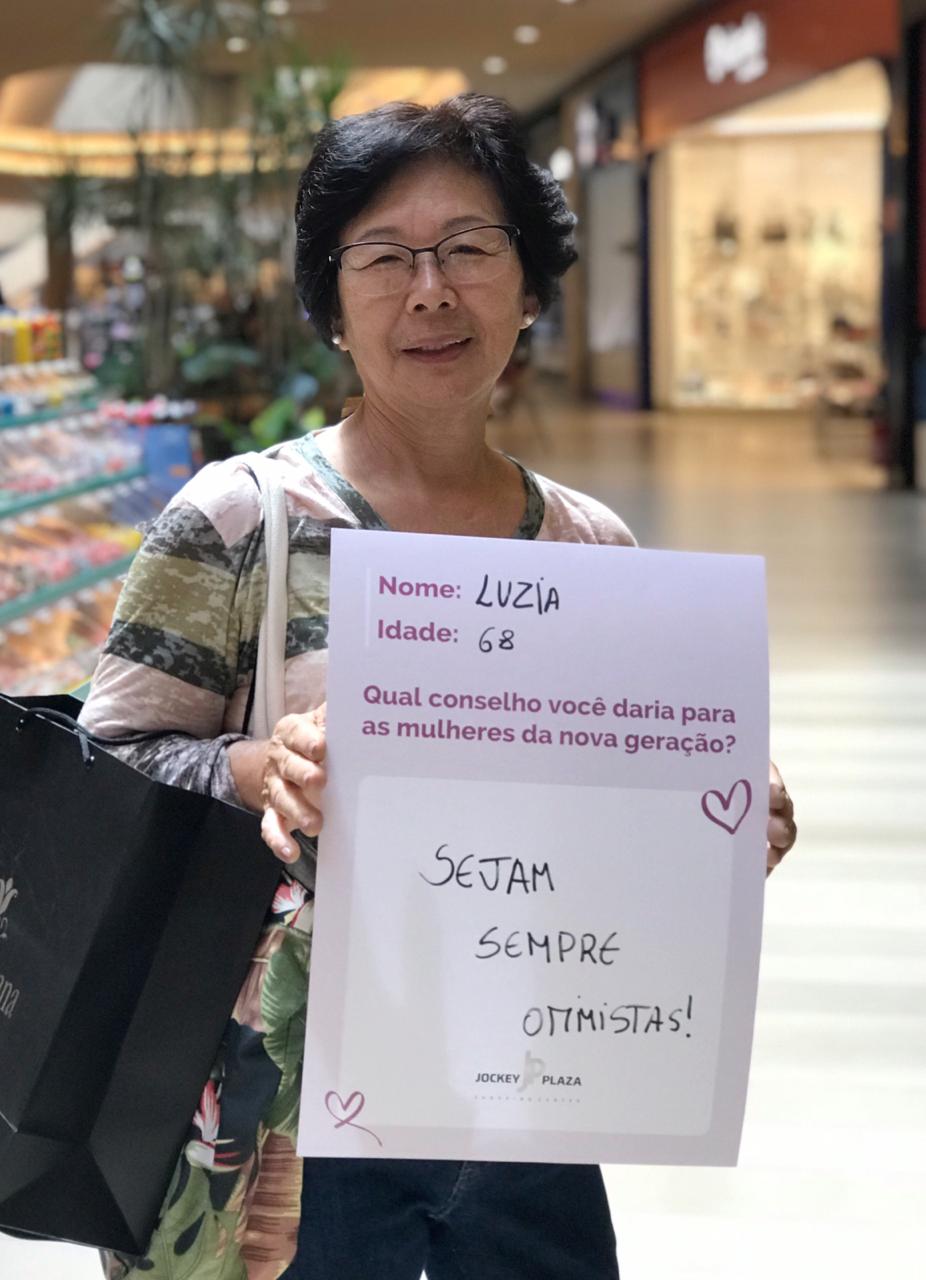 Nome: LUZIA
Idade: 68
Qual conselho você daria para
as mulheres da nova geração?
SEJAM
SEMPRE
OTIMISTAS!
JOCKEY PLAZA
SHOPPING CENTER
ana